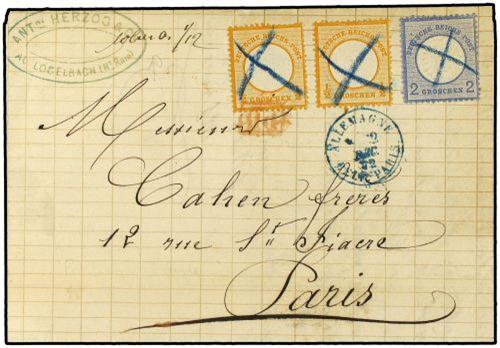 ANT. HERZOG &
AU LOGELBACH (Ht. RHIN)
DEUTSCHE REICHS-POST
GROSCHEN
DEUTSCHE REICHS-POST
½ ½
GROSCHEN
DEUTSCHE REICHS-POST
2 2
GROSCHEN
ALLEMAGNE
DEC.
72
PARIS
Messieurs
Cahen frères
12 rue St Fiacre
Paris